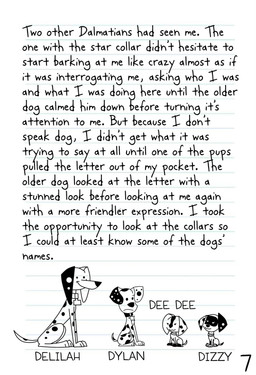 Two other Dalmatians had seen me. The
one with the star collar didn't hesitate to
start barking at me like crazy almost as if
it was interrogating me, asking who I was
and what I was doing here until the older
dog calmed him down before turning it's
attention to me. But because I don't
speak dog, I didn't get what it was
trying to say at all until one of the pups
pulled the letter out of my pocket. The
older dog looked at the letter with a
stunned look before looking at me again
with a more friendler expression. I took
the opportunity to look at the collars so
I could at least know some of the dogs'
names.
DEE DEE
DELILAH DYLAN DIZZY
7